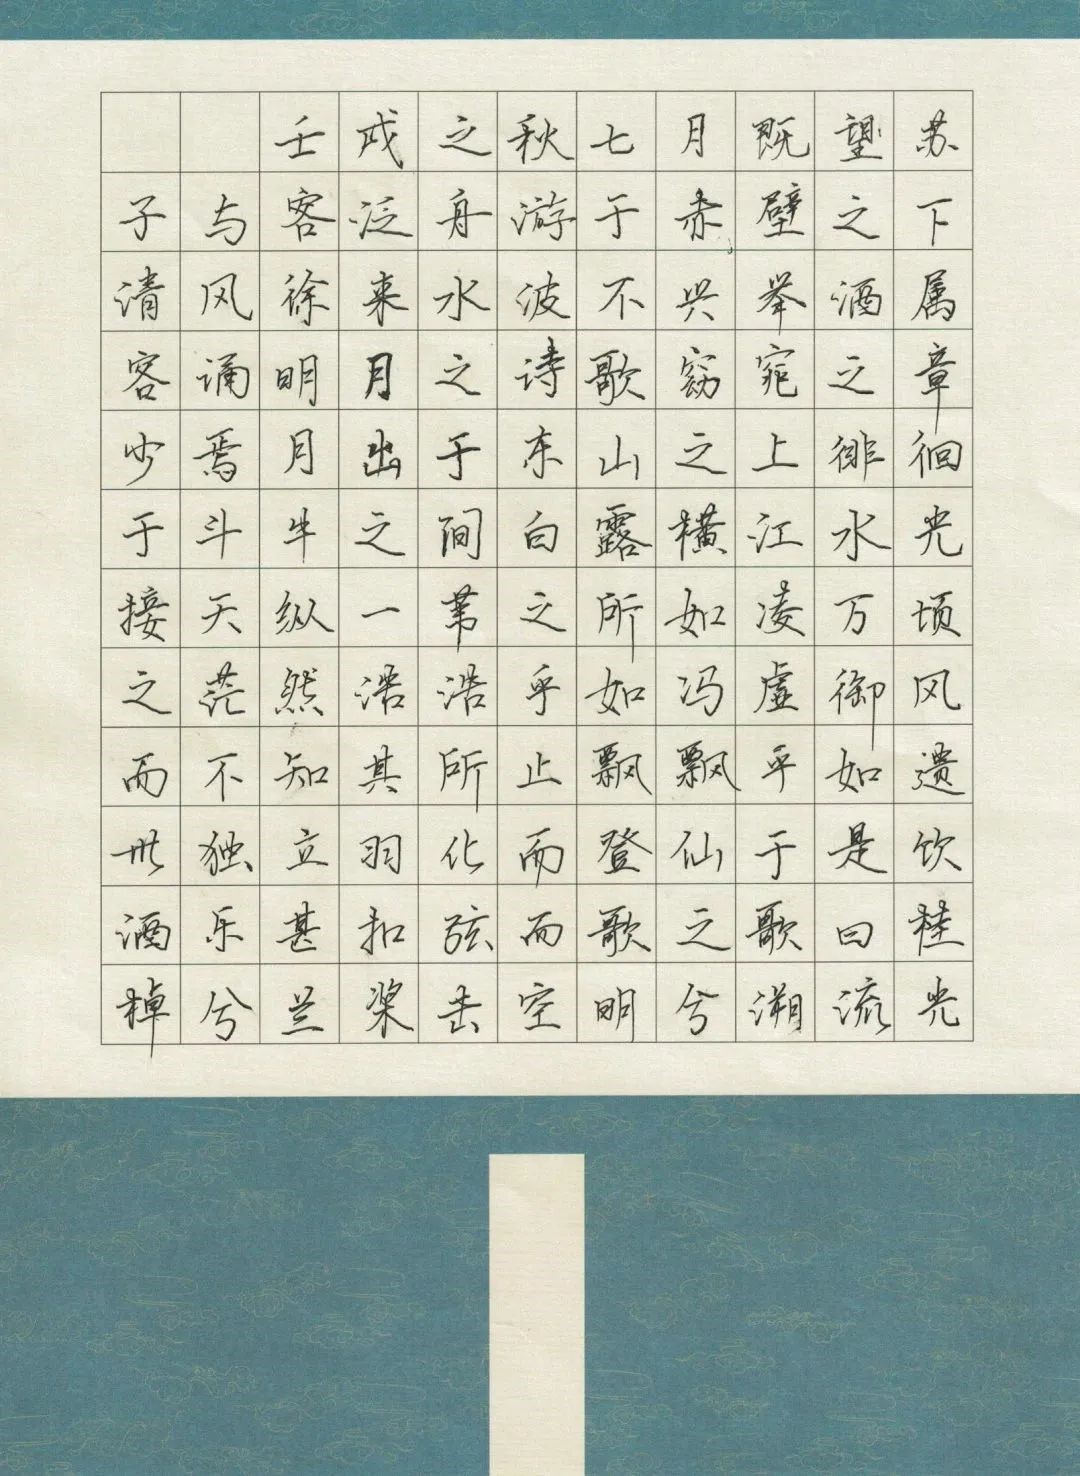 壬戌之秋七月既望苏
子与客泛舟游于赤壁之下
清风徐来水波不兴举酒属
客诵明月之诗歌窈窕之章
少焉月出于东山之上徘徊
于斗牛之间白露横江水光
接天纵一苇之所如凌万顷
之茫然浩浩乎如冯虚御风
而不知其所止飘飘乎如遗
世独立羽化而登仙于是饮
酒乐甚扣弦而歌之歌曰桂
棹兮兰桨击空明兮溯流光